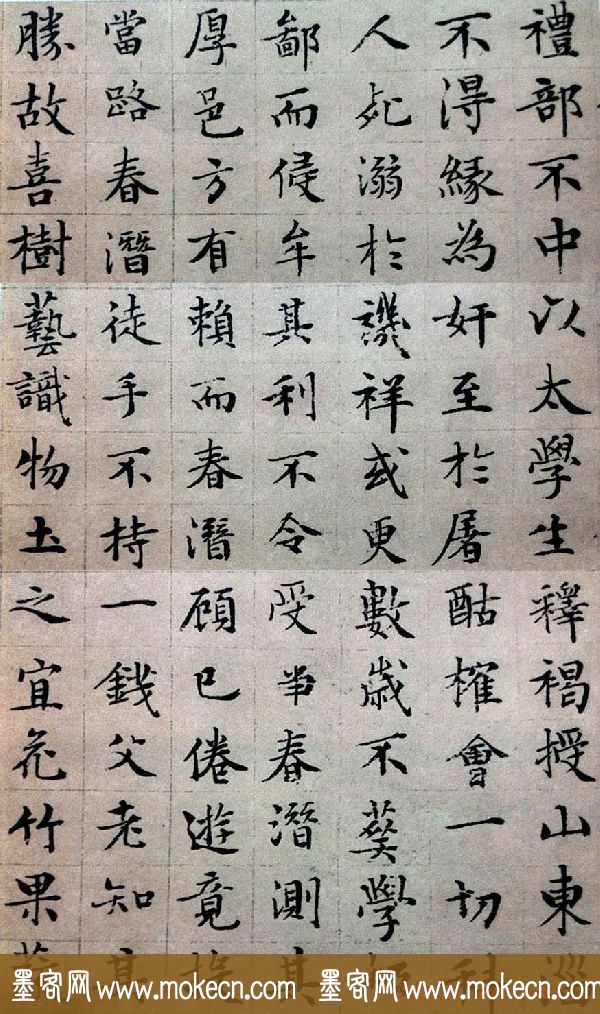 禮部不中以太學生釋褐授山東
不得緣為奸至於屠酤榷會一切
人死溺於譏祥或更數歲不葬學
鄙而侵牟其利不令受半春潛測
厚邑方有賴而春潛顧已倦遊竟
當路春潛徒手不持一錢父老知
勝故喜樹藝識物土之宜花竹果
墨客网 www.mokecn.com 墨客网 www.mokecn.com